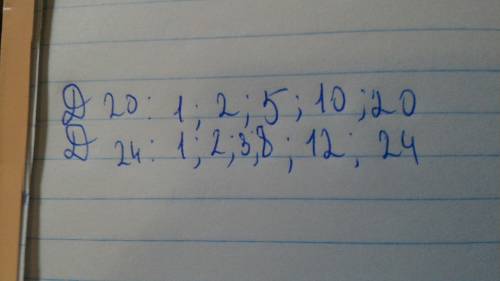 Д 20: 1; 2; 5; 10; 20
Д 24: 1; 2; 3; 8; 12; 24